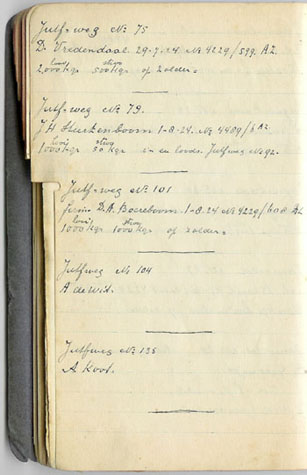 Jutfweg No 75
D. Vredendaal 29-7-24 No 4229/599 A2.
hooi stroo
2000 kgr 500 kgr op zolder.
Jutf-weg No 79.
J H Sturkenboom 1-8-24 No 4409/6 A2
hooi stroo
1000 kgr 50 kgr in en loods. Jutfweg No 92.
Jutf-weg No 101
firma D.A. Boereboom 1-8-24 No 4229/600 A2
hooi stroo
1000 kgr 1000 kgr op zolder.
Jutfweg No 104
A de Wit.
Jutfweg No 135
A Koot.